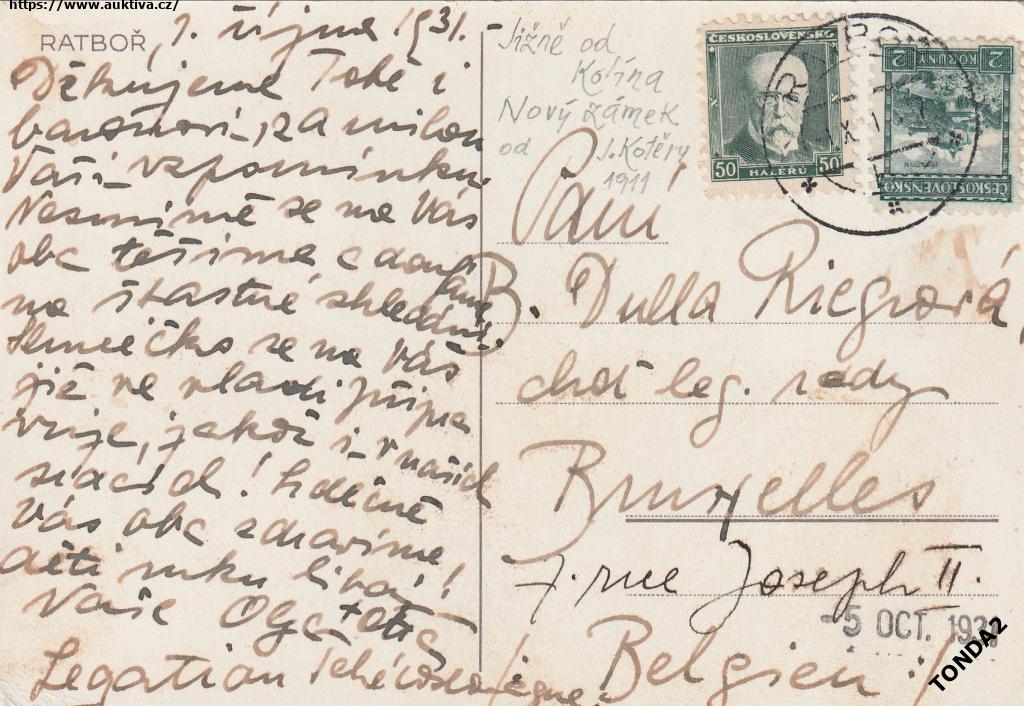 https://www.auktiva.cz/
RATBOŘ, 1. října 1931.-
Děkujeme Tobě i
za milou
Vaši vzpomínku.
Nesmírně se na Vás
oba těšíme a doufáme
na šťastné shledání.
Sluníčko se na Vás
již ve vlasti připra
vuje, jakož i v našich
srdcích! Srdečně
Vás oba zdravíme!
děti ruku líbají!
Vaše Olga +
Legation Tchécoslovaque
Jižně od
Kolína
Nový zámek
od J. Kotěry
1911
ČESKOSLOVENSKO
50 HALÉŘŮ 50
2 KORUNY 2
ČESKOSLOVENSKO
Paní
B. Dulla Riegrová,
choť leg. rady
Bruxelles
7. rue Joseph II.
-5 OCT. 193
Belgien
TONDA2